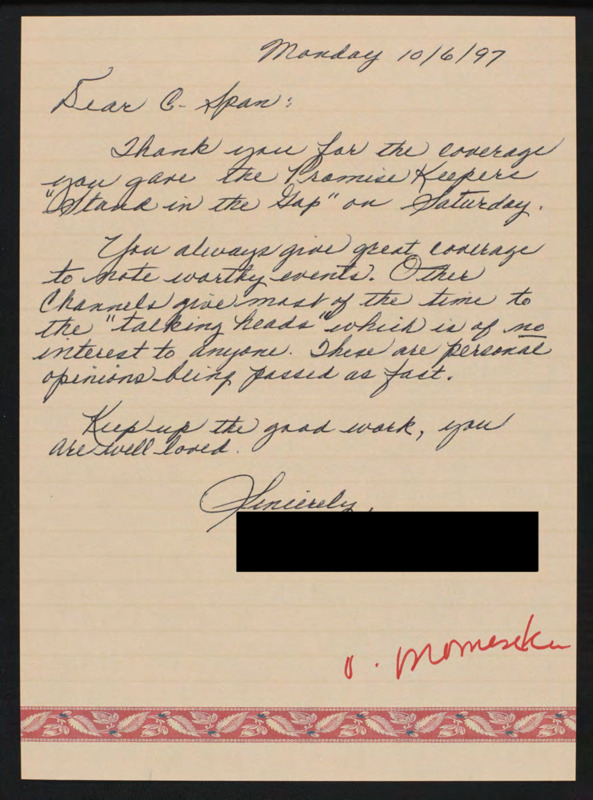 Monday 10/6/97
Dear C-Span:
Thank you for the coverage
you gave the Promise Keepers
"Stand in the Gap" on Saturday.
You always give great coverage
to note worthy events. Other
Channels give most of the time to
the "talking heads" which is of no
interest to anyone. These are personal
opinions being passed as fact.
Keep up the good work, you
are well loved.
Sincerely,